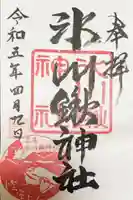 奉拝
氷川鍬神社
令和五年四月九日